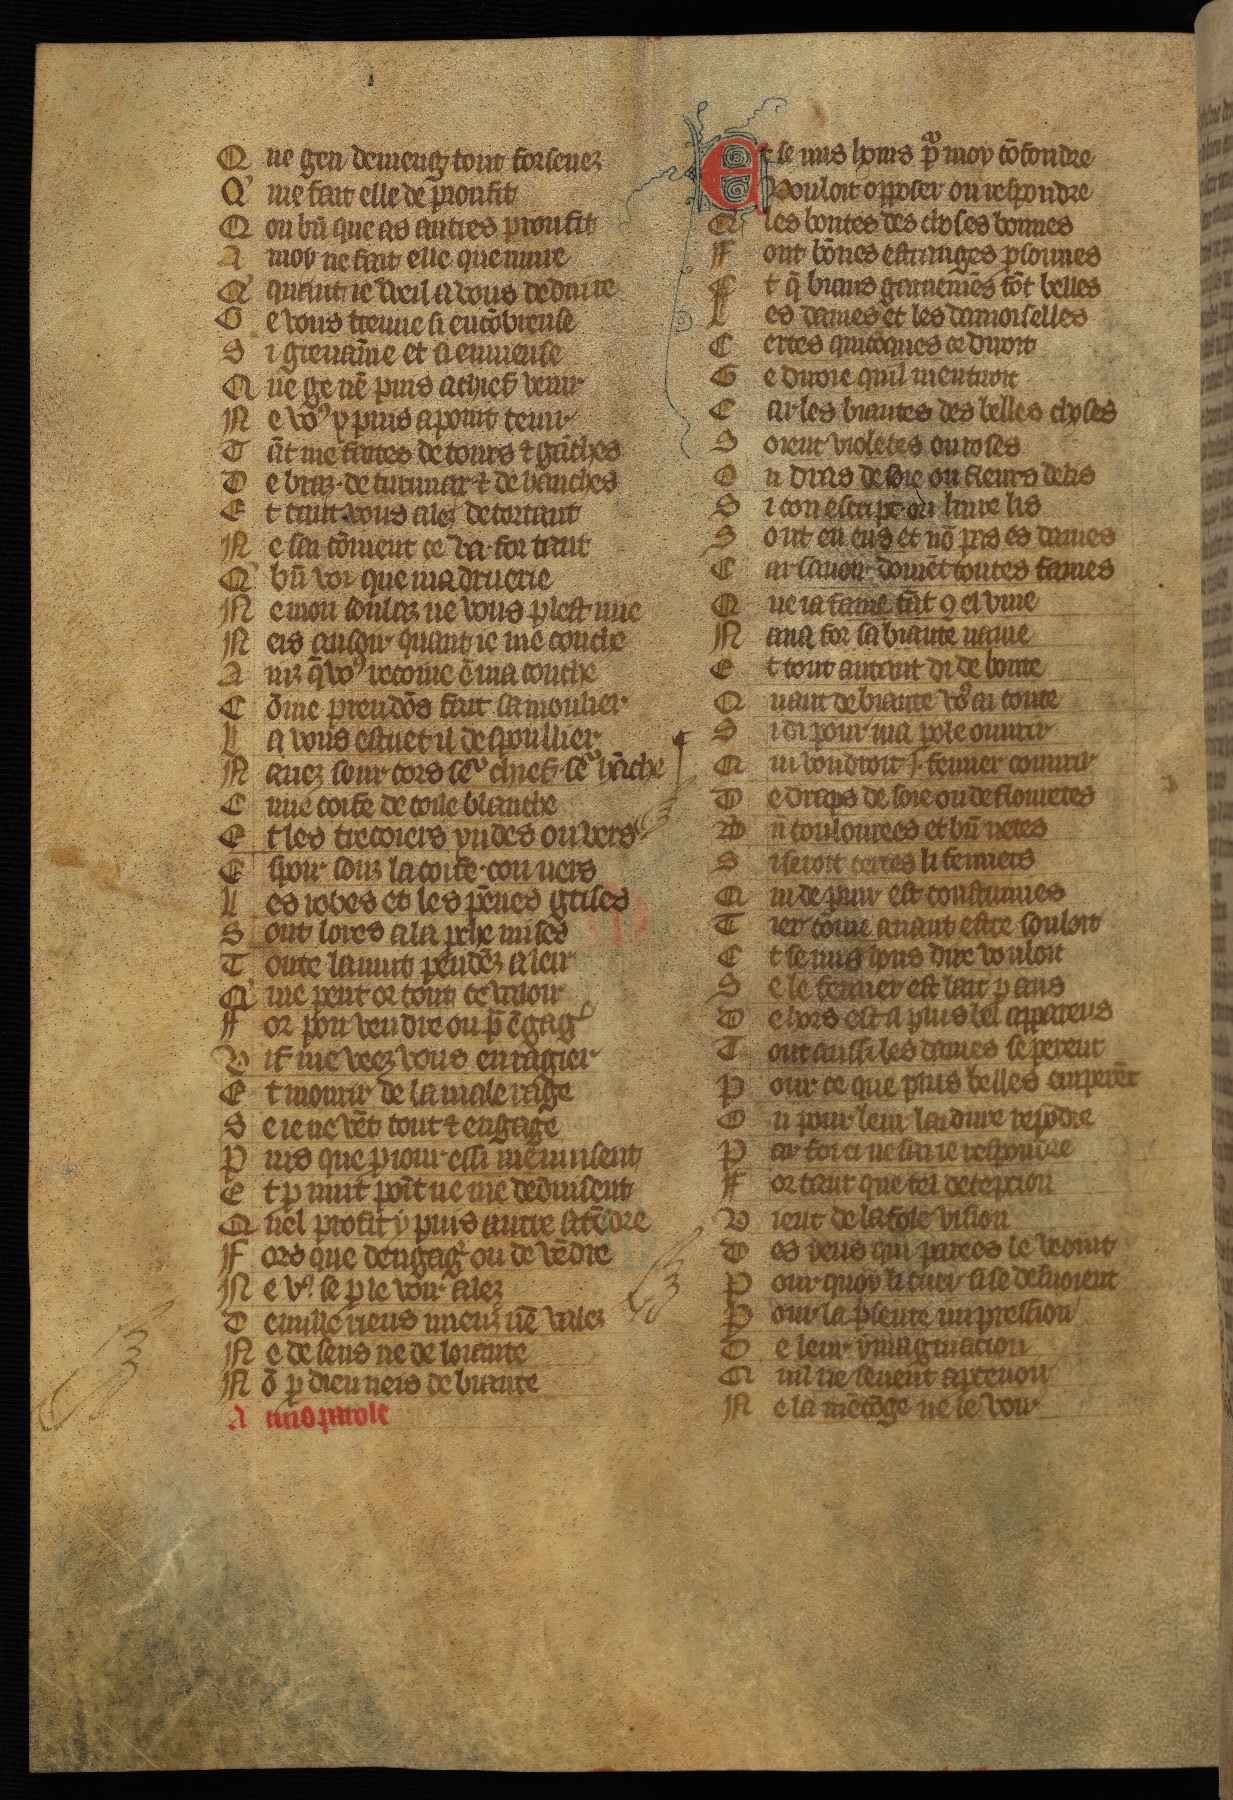 Q ue gen deuieng tout forsenez
Q' me fait elle de proufit
Q ou bn̄ que as autres proufit
A moy ne fait elle que nuire
Q' quant ie vueil a vous deduire
G e vous treuue si encōbreuse
S i greuaīne et si enuieuse
Q ue ge nē puis a chief venir
N e voꝰ y puis a point tenir
T āt me faites de tours ⁊ gāches
D e braz. de turnuer ⁊ de hanches
E t tant vous alez detortant
N e sai cōment ce va. for tant
Q' bn̄ voy que ma druerie
N e mon soulaz ne vous plest mie
N eis au soir quant ie me couche
A inz q̄ voꝰ recoiue ē ma couche
C ōme preudōs fait sa moulier
L a vous estuet il despoullier
N auez seur cors seur chief. seur hāche
C une coife de toile blanche
E t les trecoiers yndes ou vers
E spoir souz la coife. couuers
L es robes et les pēnes grises
S ont lores a la ꝑche mises
T oute la nuit pendēz a leir
Q' me peut or tout ce valoir
F or por vendre ou p̄ ēgagier
V if me veez vous enragier
E t mourir de la male rage
S e ie ne vēt tout ⁊ engage
P uis que ꝑ iour. essi me nuisent
E t ꝑ nuit point ne me deduisent
Q uel profit y puis autre atēdre
F ors que dengagr̄ ou de vēdre
N e vꝰ se ꝑ le voir alez
D e nulle riens mieuz nē valez
N e de sens ne de loiaute
N ō ꝑ dieu neis de biaute
A mis parole
E t se nus homs pour moy cōfondre
Vouloit opposer ou respondre
Q les bontes des choses bonnes
F ont bn̄es estranges ꝑsonnes
E t q̄ biaus garnemēs fōt belles
L es dames et les damoiselles
C ertes quicōques ce diroit
G e diroie quil mentiroit
C ar les biautes des belles choses
S oient violetes ou roses
O u dras de soie ou fleurs de lis
S i con escript. ou liure lis
S ont en eus et nō pas es dames
C ar sauoir doiuēt toutes fames
Q ue ia fame tāt ꝯ el viue
N aura for sa biaute naiue
E t tout autant di de bonte
Q uant de biaute voꝰ ai conte
S i di pour ma ꝑole ouurir
Q ui voudroit .j. femier couurir
D e draps de soie ou de flouretes
B n̄ coulourees et bn̄ netes
S i seroit certes li femiers
Q ui de puir est coustumiers
T ier cōme auant estre souloit
E t se nus hons dire vouloit
S e le femier est lait ꝑ ans
D ehors est il plus bel apparens
T out aussi les dames se perent
P our ce que plus belles emperēt
O u pour leur laidure repōdre
P ar foi ci ne sai ie respondre
F or tant que tel decepcion
V ient de la fole vision
D es yeus qui parees le voient
P our quoy li cuer si se desuoient
P our la plesant impression
D e leur ymaginacion
Q uil ne seuent aꝑceuoir
N e la mēcōge ne le voir